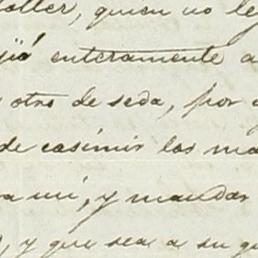 otter, quien no le
jió enteramente a
otro de seda, por
de casimir las ma
a mi, y mandar
, y que sea a su gu